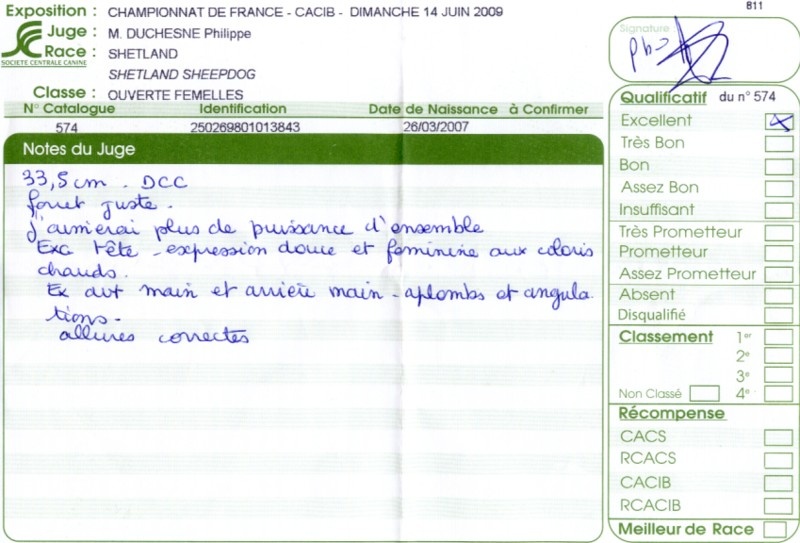 811
Exposition : CHAMPIONNAT DE FRANCE - CACIB - DIMANCHE 14 JUIN 2009
Juge : M. DUCHESNE Philippe
Race : SHETLAND
SOCIETE CENTRALE CANINE
SHETLAND SHEEPDOG
Classe : OUVERTE FEMELLES
N° Catalogue Identification Date de Naissance à Confirmer
574 250269801013843 26/03/2007
Notes du Juge
33,5 cm . DCC
fouet juste .
j'aimerai plus de puissance d'ensemble
Exc tête - expression douce et feminine aux coloris
chauds .
Ex avt main et arrière main - aplombs et angula
tions -
allures correctes
Signature
Qualificatif du n° 574
Excellent
Très Bon
Bon
Assez Bon
Insuffisant
Très Prometteur
Prometteur
Assez Prometteur
Absent
Disqualifié
Classement 1er
2e
3e
Non Classé 4e
Récompense
CACS
RCACS
CACIB
RCACIB
Meilleur de Race